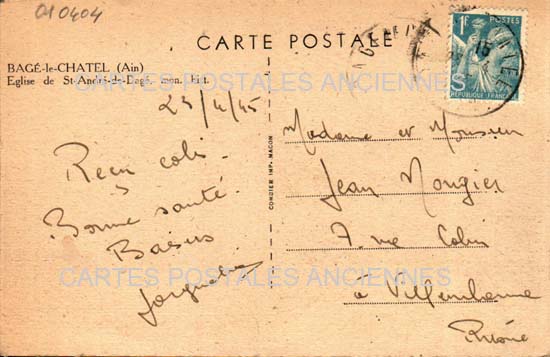 010404
CARTE POSTALE
BAGÉ-le-CHATEL (Ain)
Eglise de St-André-de-Bagé, mon. hist.
23/4/45
Reçu colis.
Bonne santé.
Baisers
CONDIER IMP. MACON
1F
POSTES
RÉPUBLIQUE FRANÇAISE
Madame et Monsieur
Jean Mongier
7, rue Colin
à Villeurbanne
Rhône
CARTES POSTALES ANCIENNES
CARTES POSTALES ANCIENNES